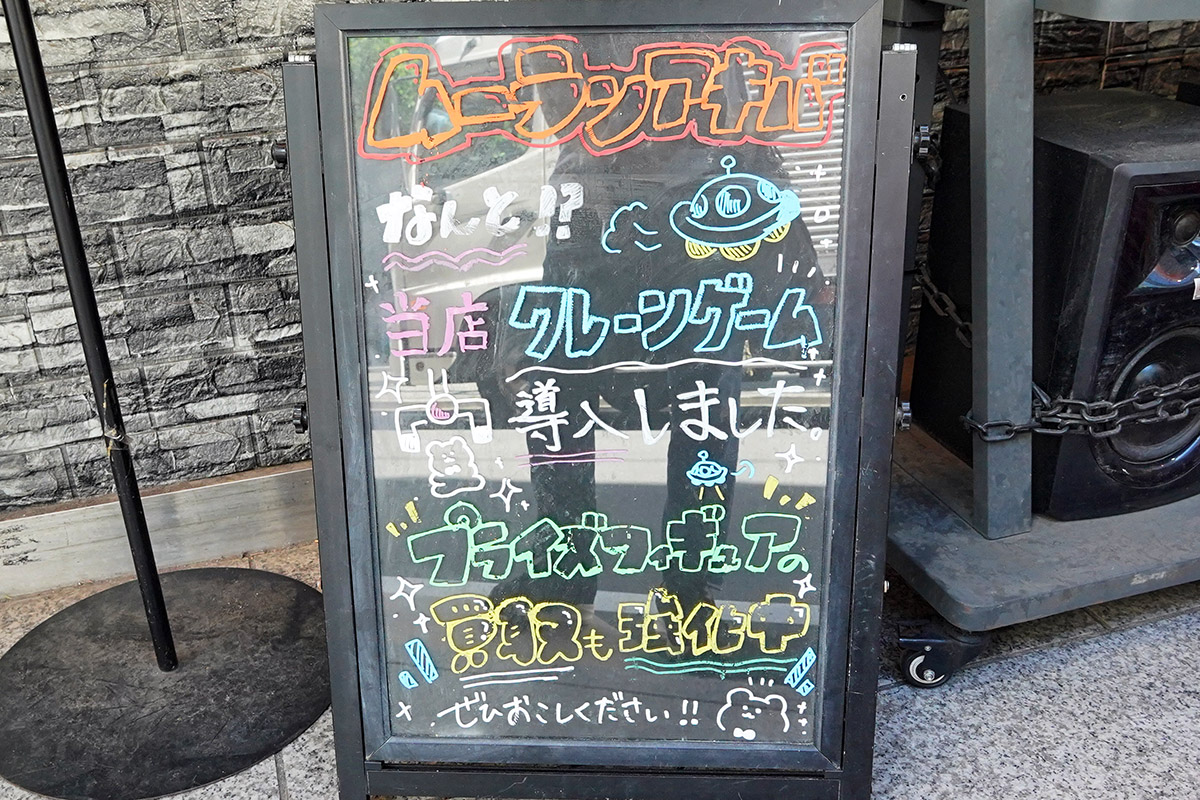 ムーランアキバ
なんと!?
当店 クレーンゲーム
導入しました。
プライズフィギュアの
買取も強化中
ぜひおこしください!!